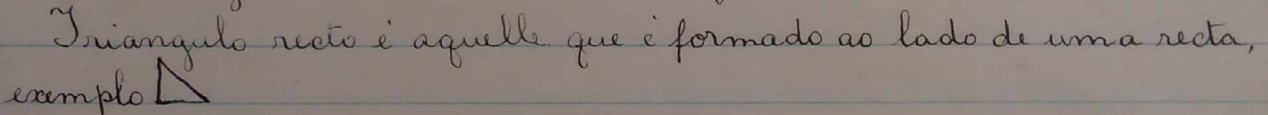 Triangulo recto é aquelle que é formado ao lado de uma recta,
exemplo